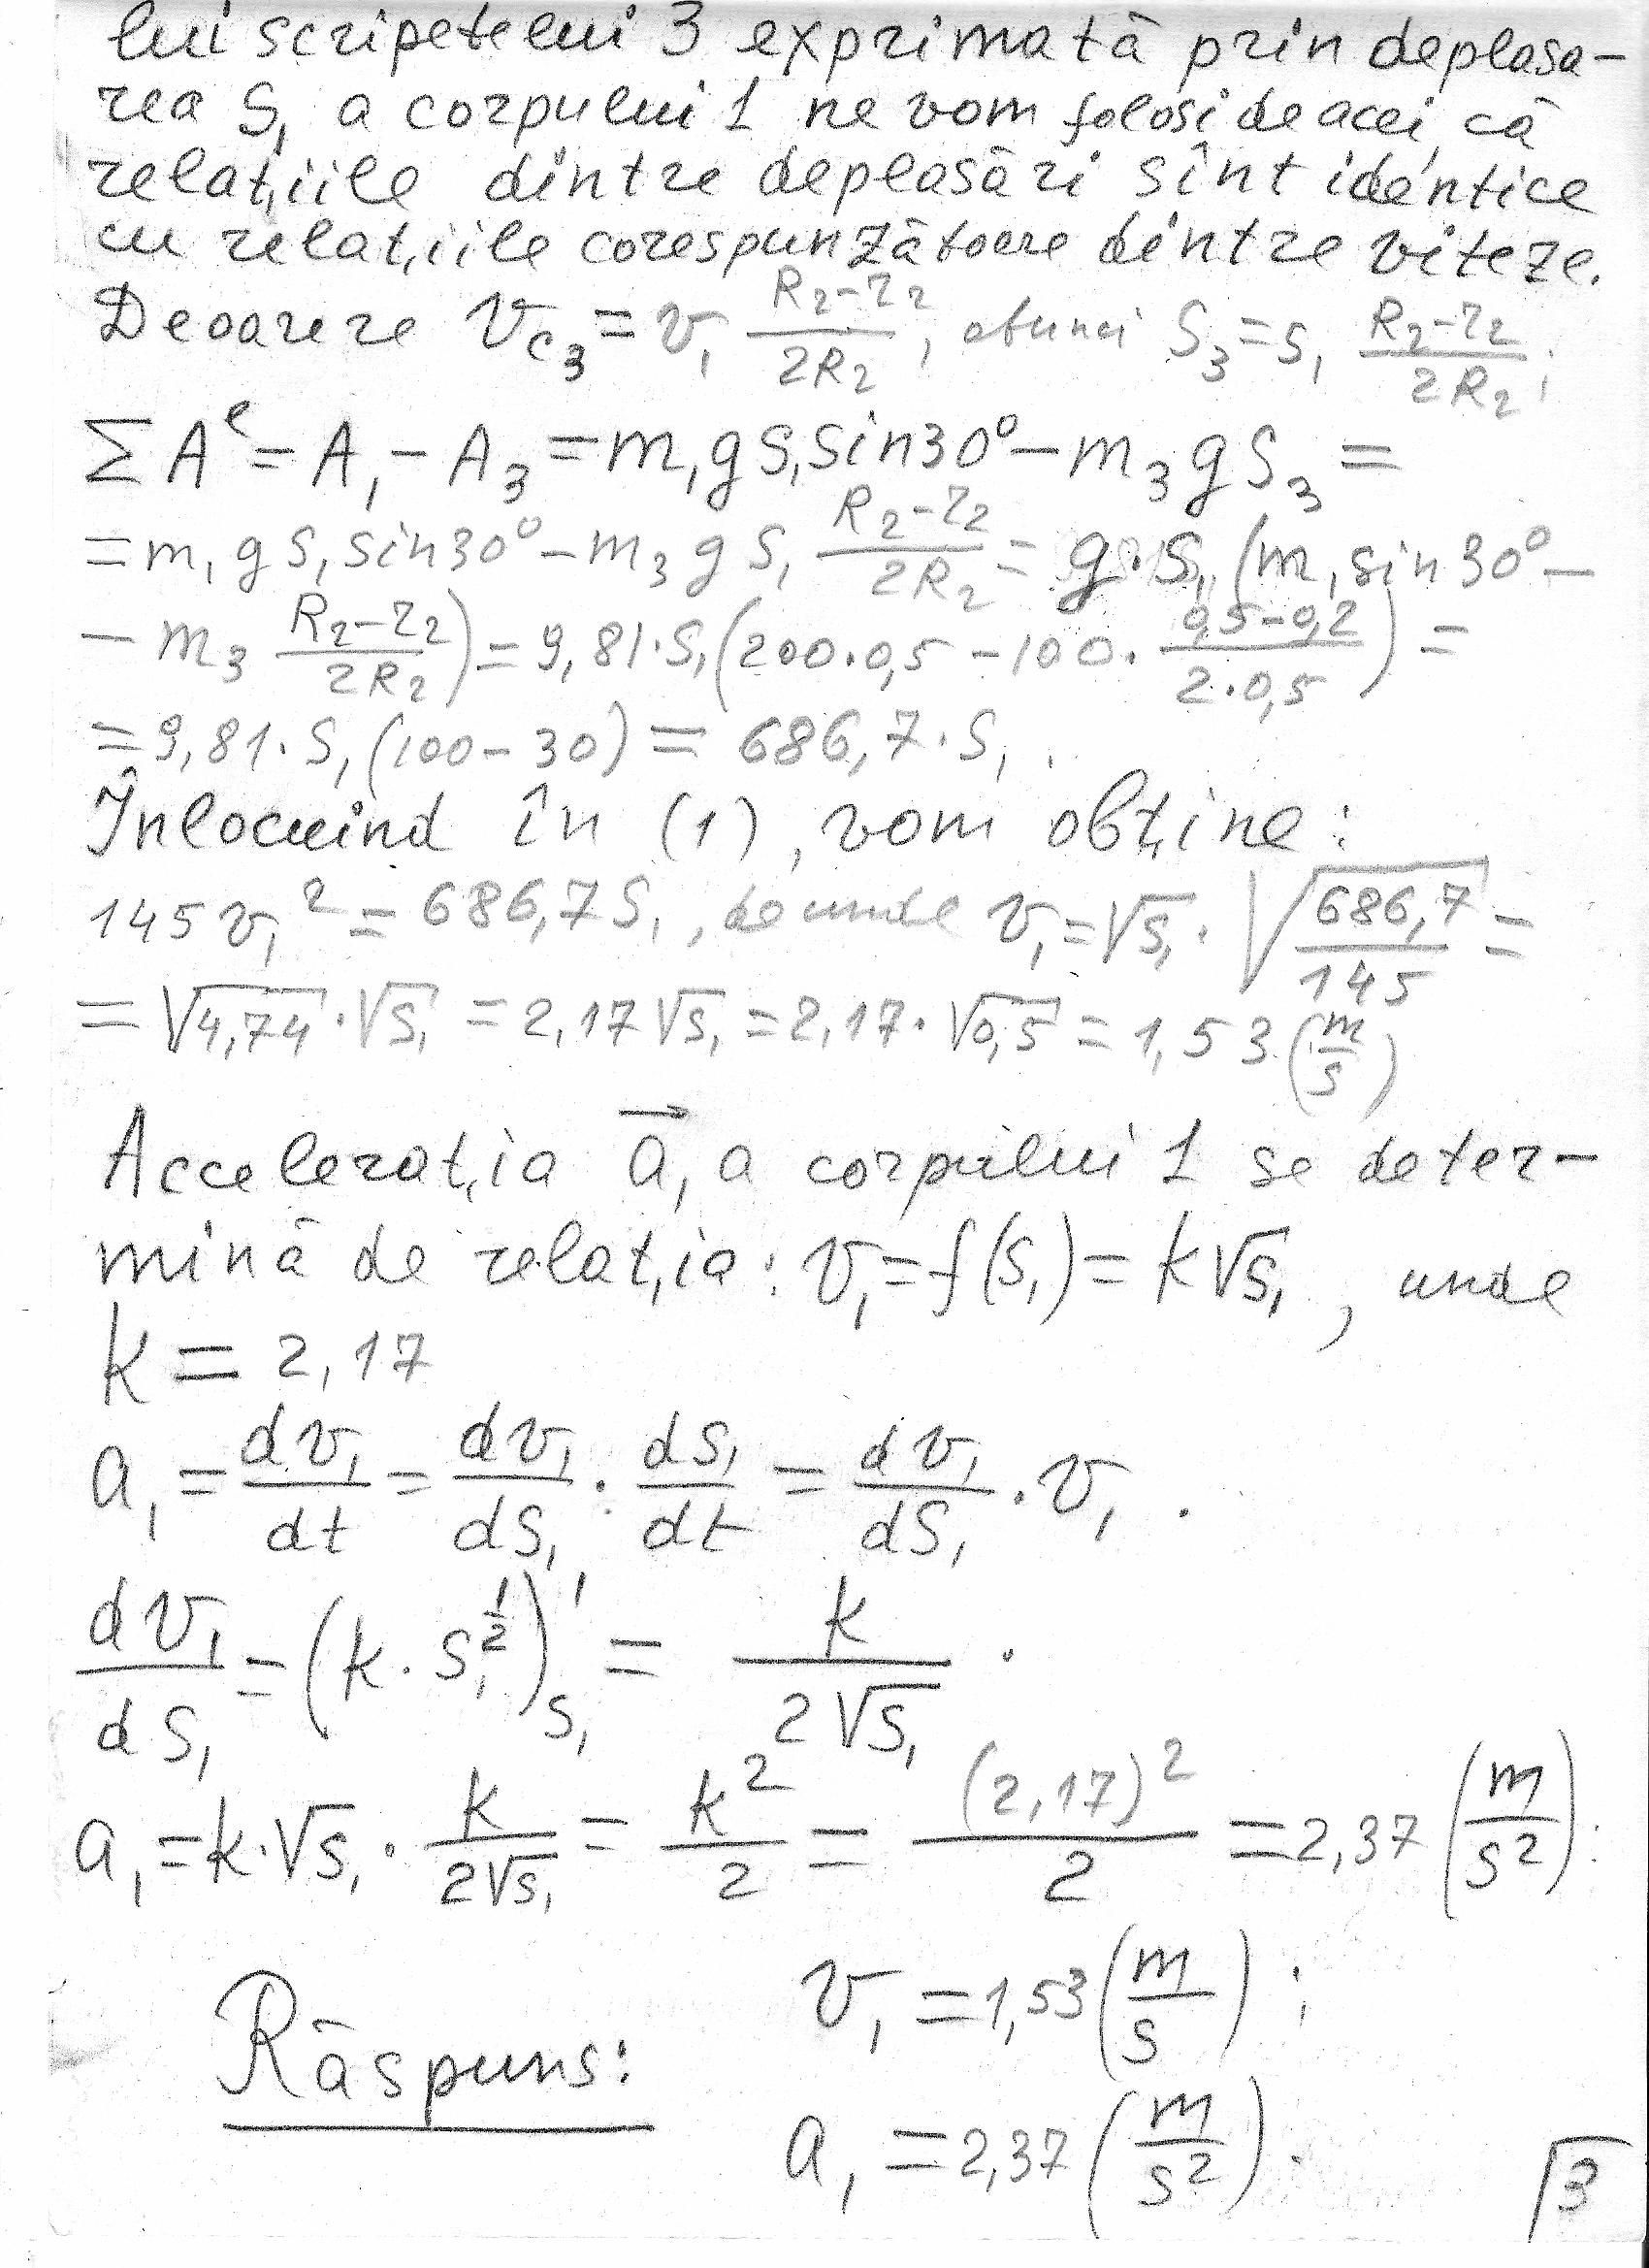 lui scripetelui 3 exprimată prin deplasa-
rea S₁ a corpului 1 ne vom folosi de acei, că
relațiile dintre deplasări sînt identice
cu relațiile corespunzătoare dintre viteze.
Deoarece v_{c3} = v₁ (R₂-r₂)/(2R₂), atunci S₃ = S₁ (R₂-r₂)/(2R₂);
ΣAᵉ = A₁ - A₃ = m₁gS₁sin30° - m₃gS₃ =
= m₁gS₁sin30° - m₃gS₁ (R₂-r₂)/(2R₂) = g·S₁(m₁sin30° -
- m₃ (R₂-r₂)/(2R₂)) = 9,81·S₁(200·0,5 - 100·(0,5-0,2)/(2·0,5)) =
= 9,81·S₁(100-30) = 686,7·S₁.
Înlocuind în (1), vom obține:
145v₁² = 686,7S₁, de unde v₁ = √S₁ · √(686,7/145) =
= √4,74 · √S₁ = 2,17√S₁ = 2,17·√0,5 = 1,53 (m/s)
Accelerația a⃗₁ a corpului 1 se deter-
mină de relația: v₁ = f(S₁) = k√S₁, unde
k = 2,17
a₁ = dv₁/dt = dv₁/dS₁ · dS₁/dt = dv₁/dS₁ · v₁.
dv₁/dS₁ = (k·S₁^{1/2})'_{S₁} = k/(2√S₁).
a₁ = k·√S₁ · k/(2√S₁) = k²/2 = (2,17)²/2 = 2,37 (m/s²).
Răspuns: v₁ = 1,53 (m/s);
a₁ = 2,37 (m/s²).
3